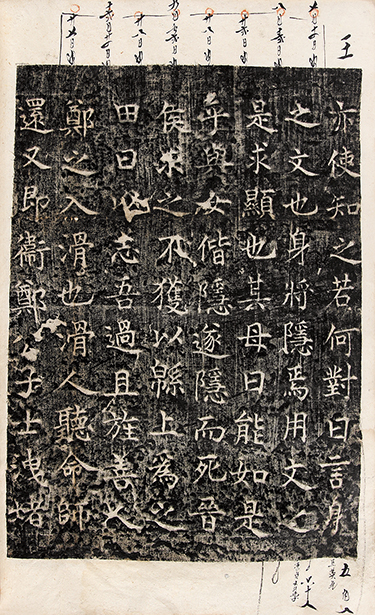 王
亦使知之若何對曰言身
之文也身將隱焉用文之
是求顯也其母曰能如是
乎與女偕隱遂隱而死晉
侯求之不獲以緜上爲之
田曰以志吾過且旌善人
鄭之入滑也滑人聽命師
還又即衞鄭公子士洩堵